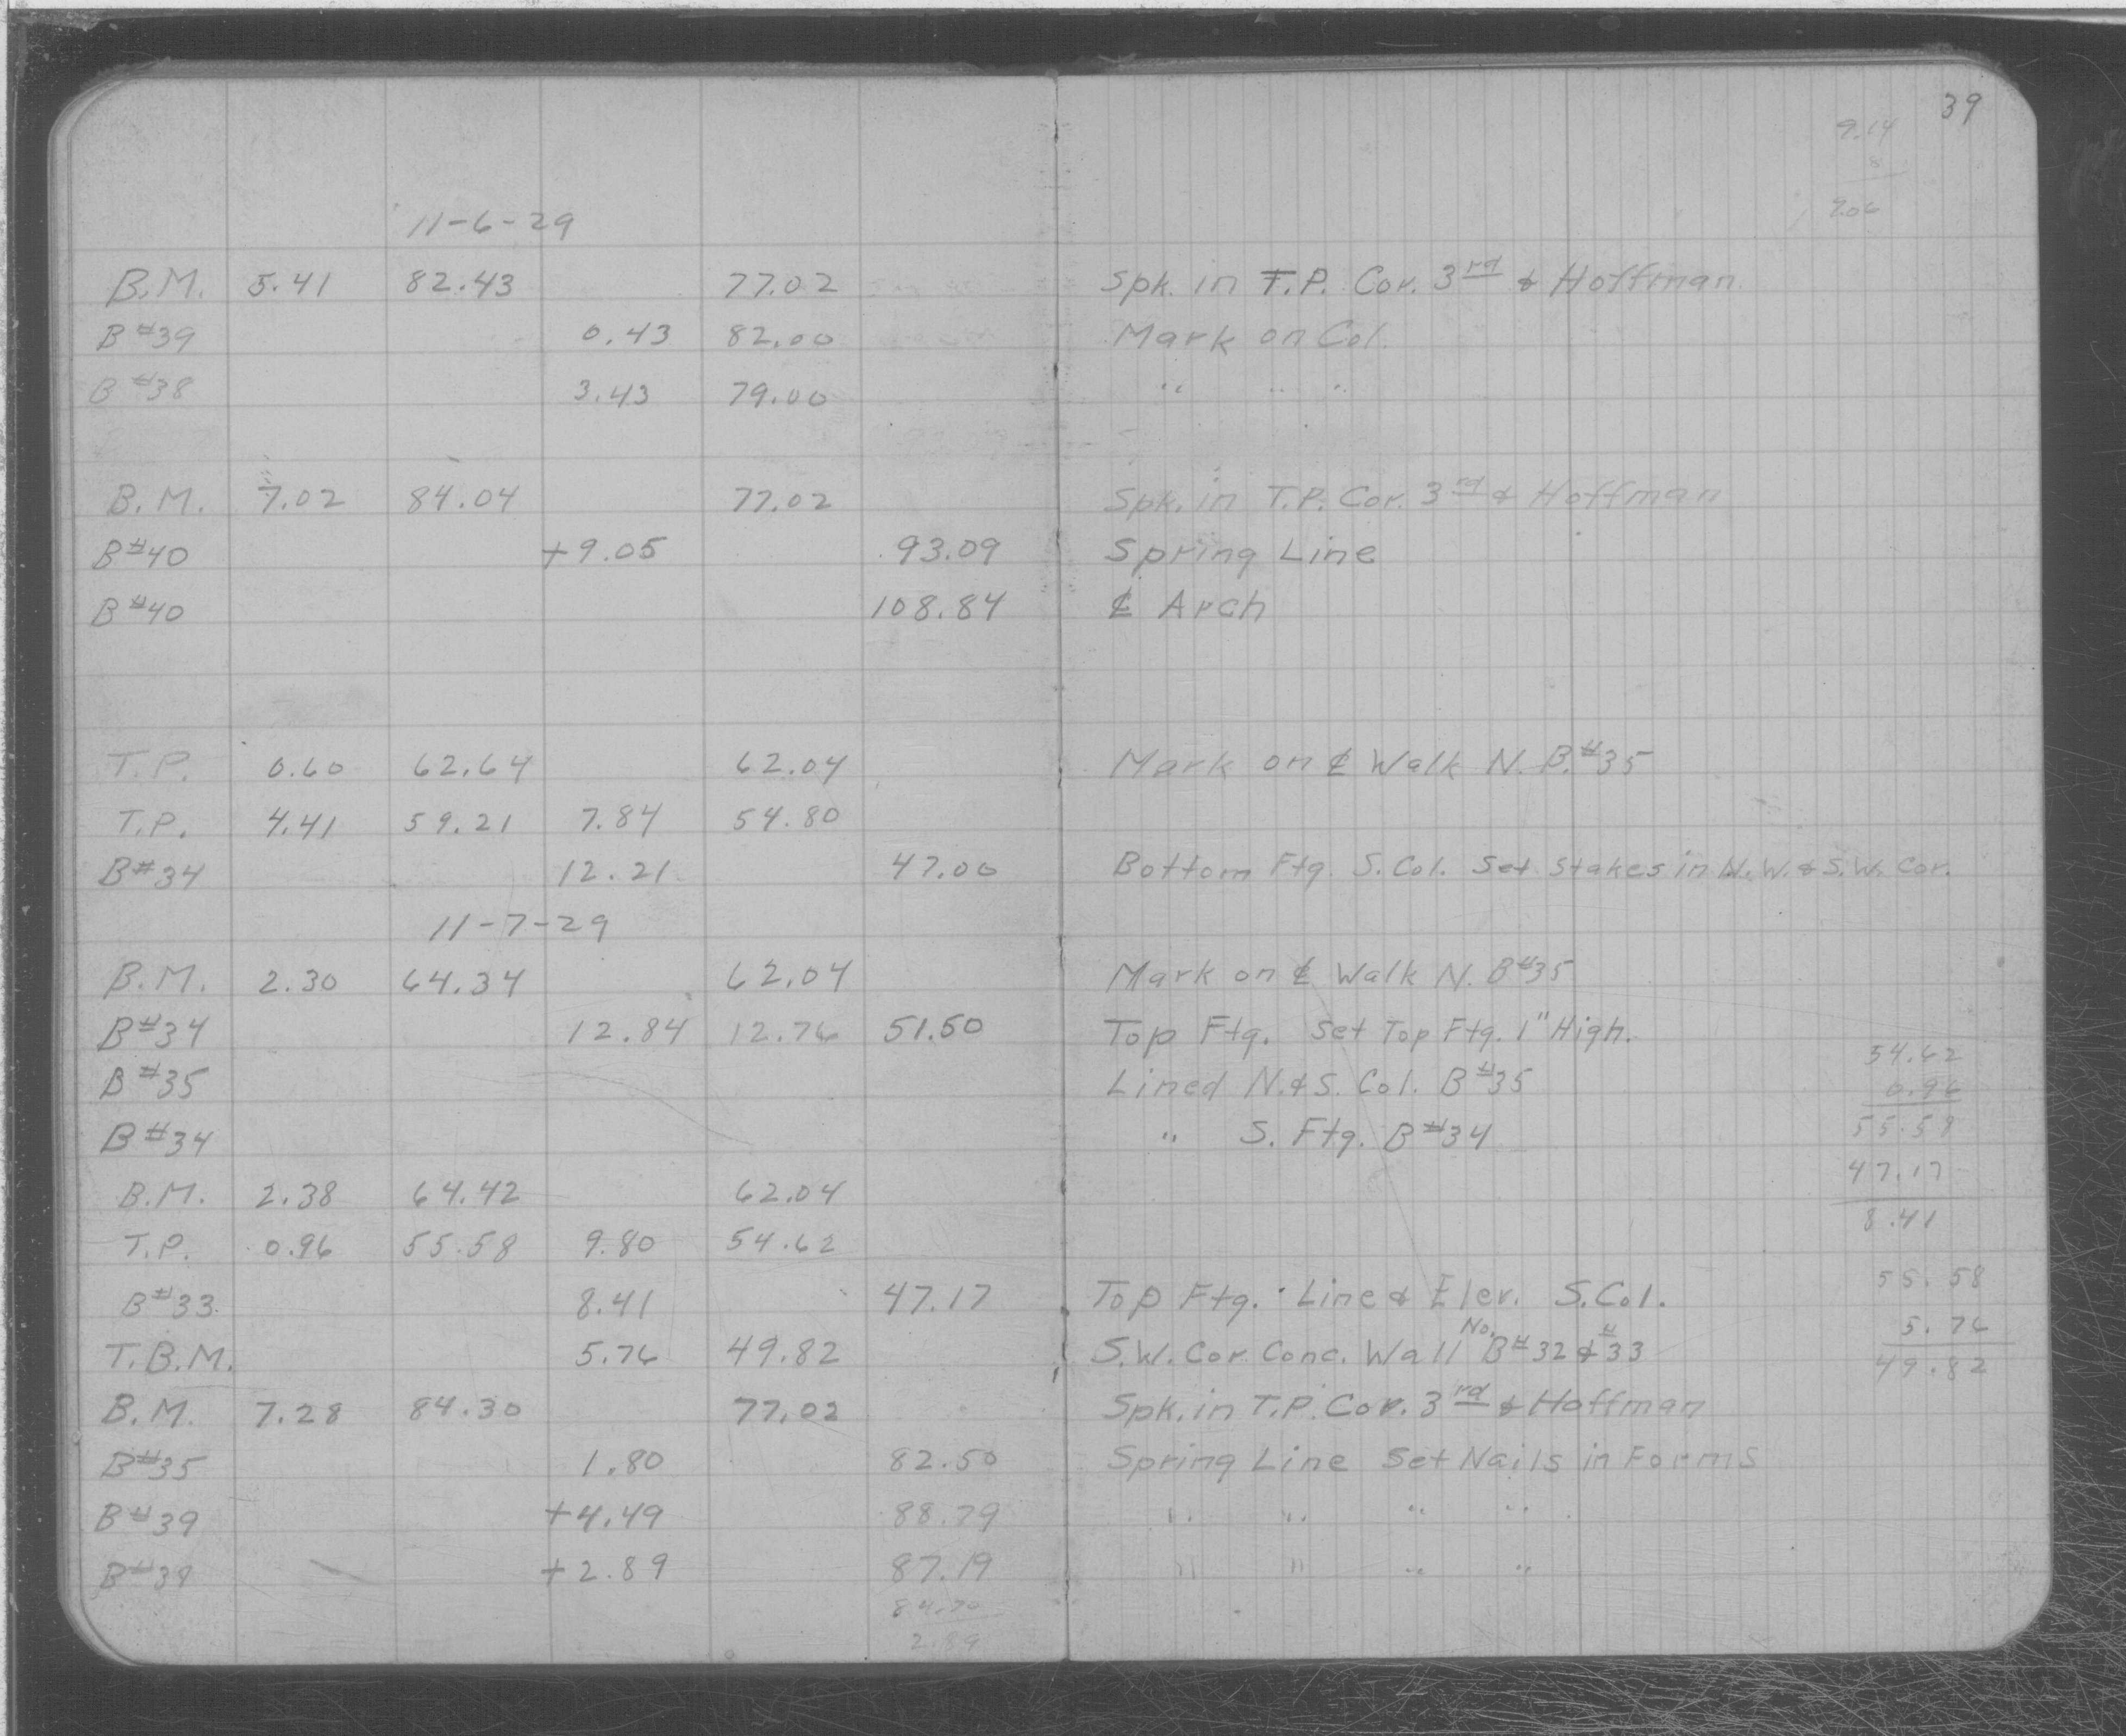 39
9.14
8
11-6-29
B.M. 5.41 82.43 77.02 Spk. in T.P. Cor. 3rd & Hoffman
B#39 0.43 82.00 Mark on Col.
B#38 3.43 79.00 " " "
B.M. 7.02 84.04 77.02 Spk. in T.P. Cor. 3rd & Hoffman
B#40 +9.05 93.09 Spring Line
B#40 108.84 ₵ Arch
T.P. 0.60 62.64 62.04 Mark on ₵ Walk N. B.#35
T.P. 4.41 59.21 7.84 54.80
B#34 12.21 47.00 Bottom Ftg. S. Col. Set Stakes in N.W. & S.W. Cor.
11-7-29
B.M. 2.30 64.34 62.04 Mark on ₵ Walk N. B#35
B#34 12.84 12.76 51.50 Top Ftg. Set Top Ftg. 1" High.
54.62
B#35 Lined N. & S. Col. B#35
0.96
B#34 " S. Ftg. B#34
55.58
47.17
B.M. 2.38 64.42 62.04
8.41
T.P. 0.96 55.58 9.80 54.62
B#33 8.41 47.17 Top Ftg. Line & Elev. S. Col.
55.58
5.76
T.B.M. 5.76 49.82 S.W. Cor. Conc. Wall No. B#32 & #33
49.82
B.M. 7.28 84.30 77.02 Spk. in T.P. Cor. 3rd & Hoffman
B#35 1.80 82.50 Spring Line Set Nails in Forms
B#39 +4.49 88.79 " " " "
+2.89 87.19 " " " "
84.30
2.89